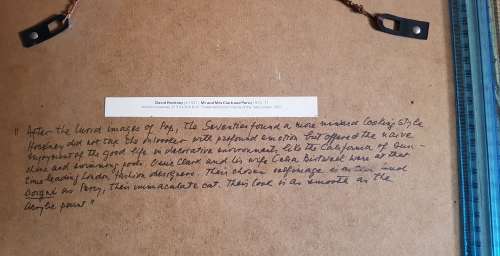 David Hockney (b.1937) Mr and Mrs Clark and Percy 1970-71
" After the lurid images of Pop, the Seventies found a more mixed cooling style
Hockney did not tap the broader with profound emotion but offered the naive
enjoyment of the good life in decorative environments, like the California of sun-
shine and swimming pools. Ossie Clark and his wife Celia Birtwell were at that
time leading London fashion designers. Their chosen selfimage is as cool and
soigné as Percy, their immaculate cat. Their look is as smooth as the
acrylic paint "